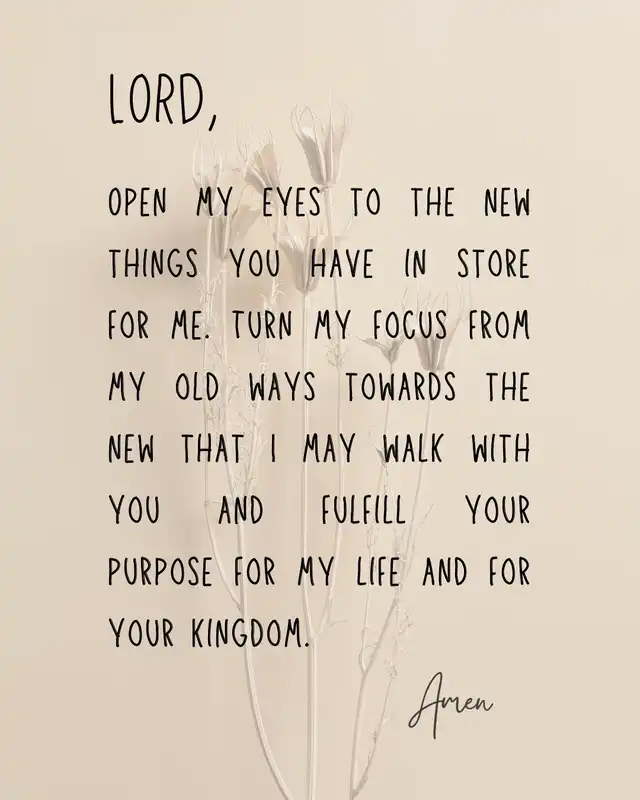 LORD,
OPEN MY EYES TO THE NEW
THINGS YOU HAVE IN STORE
FOR ME. TURN MY FOCUS FROM
MY OLD WAYS TOWARDS THE
NEW THAT I MAY WALK WITH
YOU AND FULFILL YOUR
PURPOSE FOR MY LIFE AND FOR
YOUR KINGDOM.
Amen